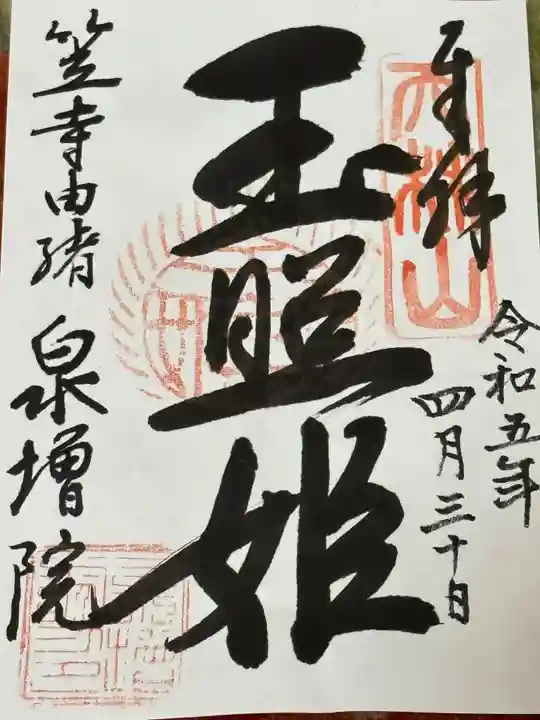 奉拝
令和五年
四月三十日
玉照姫
笠寺由緒 泉増院